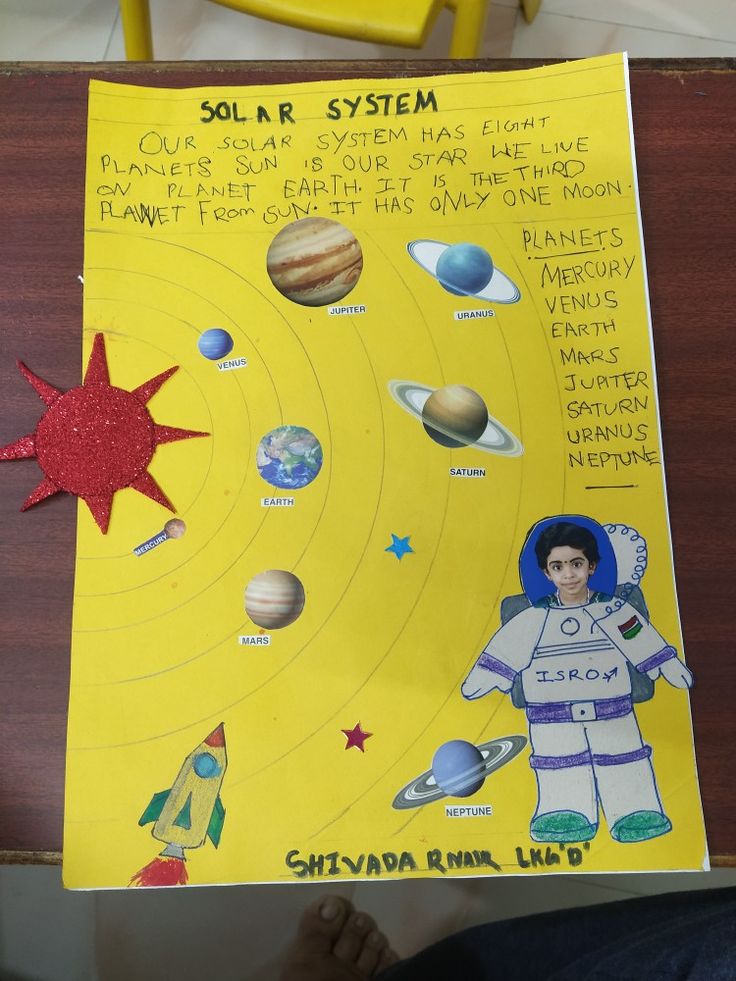 SOLAR SYSTEM
OUR SOLAR SYSTEM HAS EIGHT
PLANETS SUN IS OUR STAR WE LIVE
ON PLANET EARTH. IT IS THE THIRD
PLANET FROM SUN. IT HAS ONLY ONE MOON.
PLANETS
MERCURY
VENUS
EARTH
MARS
JUPITER
SATURN
URANUS
NEPTUNE
JUPITER
URANUS
VENUS
SATURN
EARTH
MERCURY
MARS
ISRO
NEPTUNE
SHIVADA R NAIR LKG 'D'